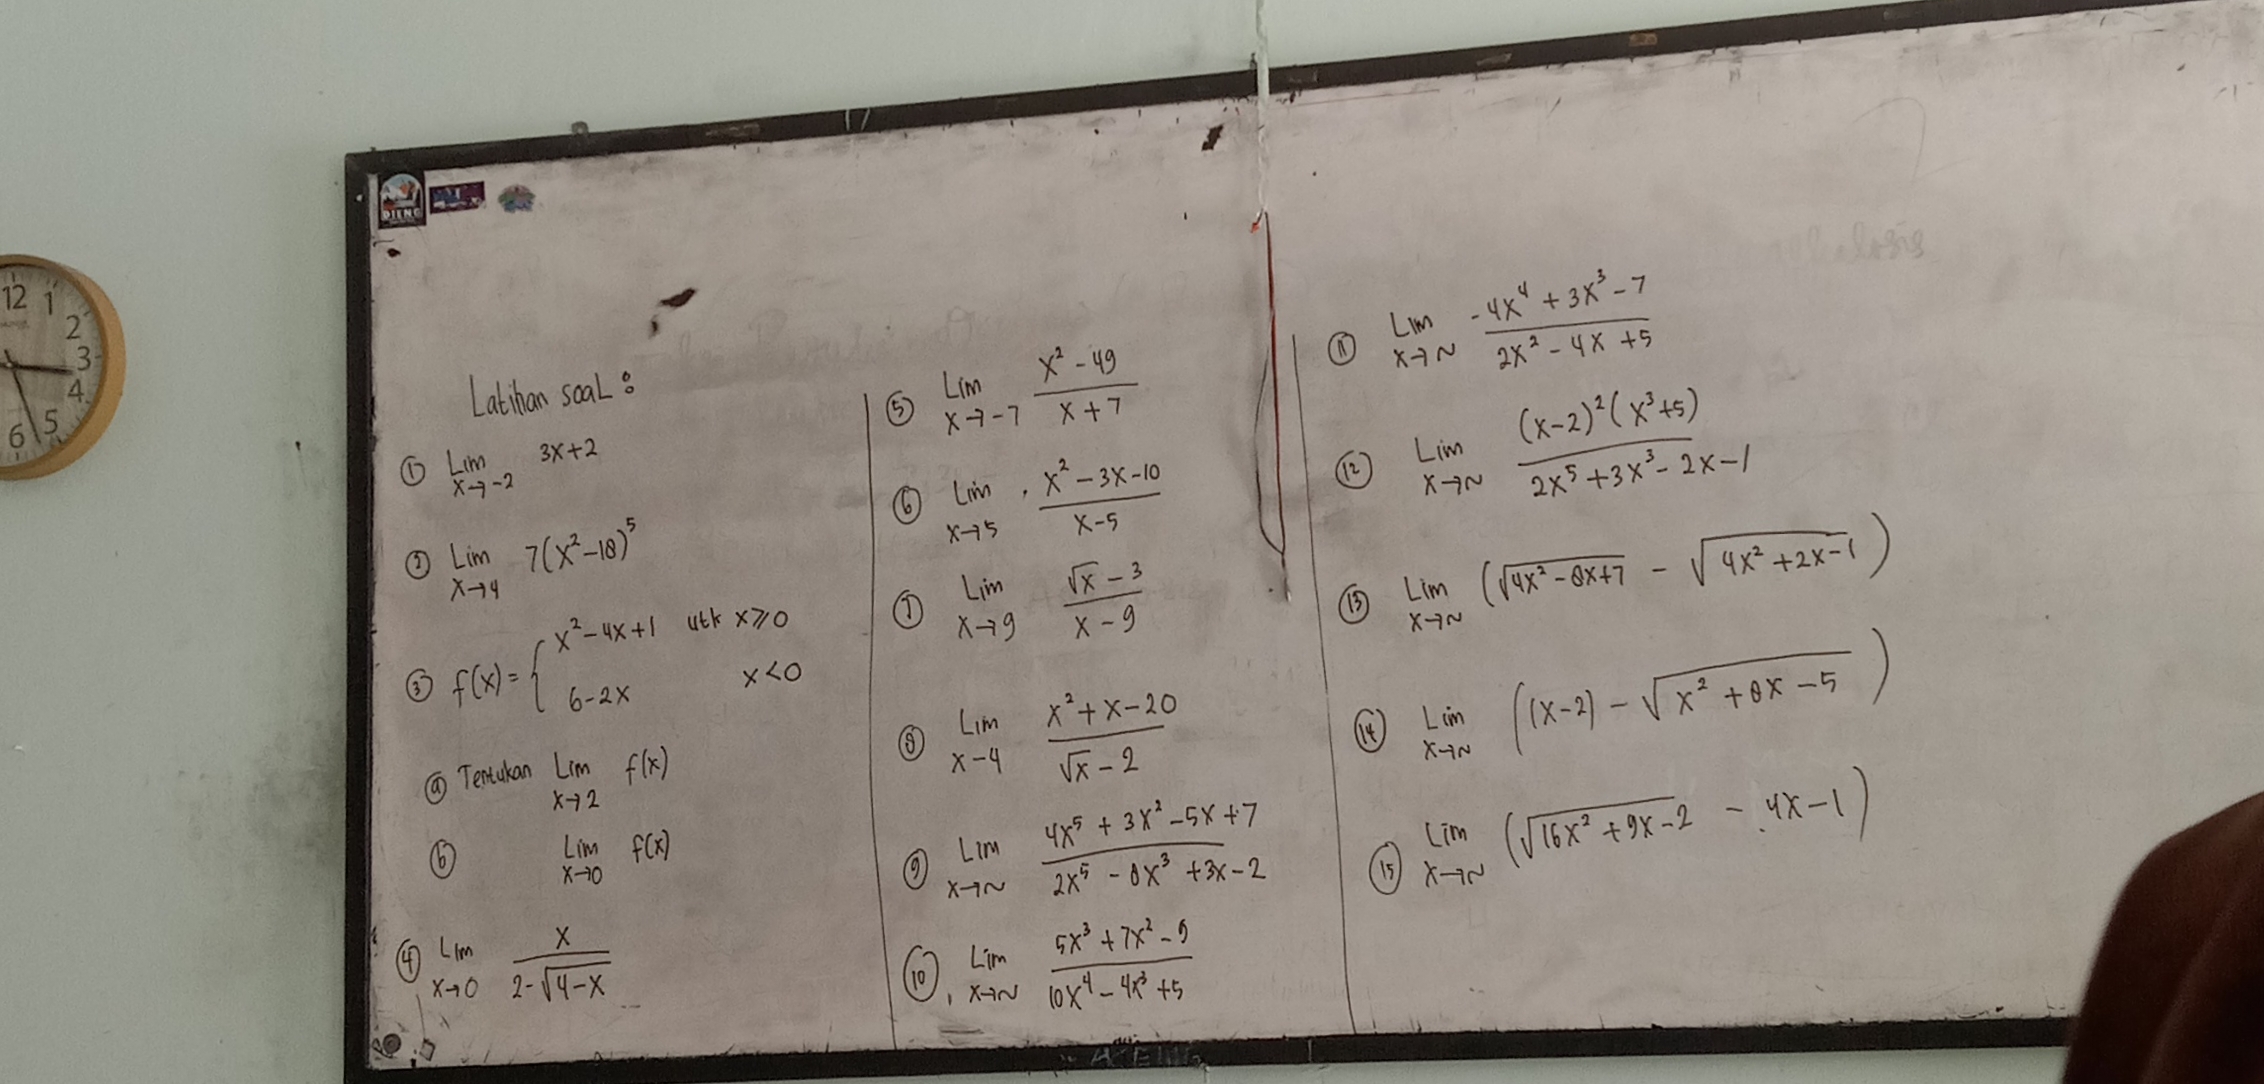 12 1
2
3
4
5
6
DIENG
Latihan soal :
① Lim 3x+2
x→-2
② Lim 7(x²-18)⁵
x→4
③ f(x) = { x²-4x+1 utk x⩾0
6-2x x<0
ⓐ Tentukan Lim f(x)
x→2
ⓑ Lim f(x)
x→0
④ Lim x
x→0 2-√4-x
⑤ Lim x²-49
x→-7 x+7
⑥ Lim x²-3x-10
x→5 x-5
⑦ Lim √x-3
x→9 x-9
⑧ Lim x²+x-20
x-4 √x-2
⑨ Lim 4x⁵+3x²-5x+7
x→~ 2x⁵-8x³+3x-2
⑩ Lim 5x³+7x²-9
x→~ 10x⁴-4x³+5
⑪ Lim -4x⁴+3x³-7
x→~ 2x²-4x+5
⑫ Lim (x-2)²(x³+5)
x→~ 2x⁵+3x³-2x-1
⑬ Lim (√4x²-8x+7 - √4x²+2x-1)
x→~
⑭ Lim ((x-2)-√x²+8x-5)
x→~
⑮ Lim (√16x²+9x-2 - 4x-1)
x→~